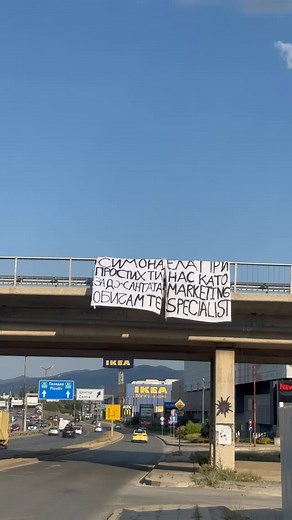 СИМОНА
ПРОСТИХ ТИ
ЗА ДЖАНТАТА
ОБИЧАМ ТЕ
ЕЛА ПРИ
НАС КАТО
MARKETING
SPECIALIST
IKEA
IKEA
Пловдив
Plovdiv